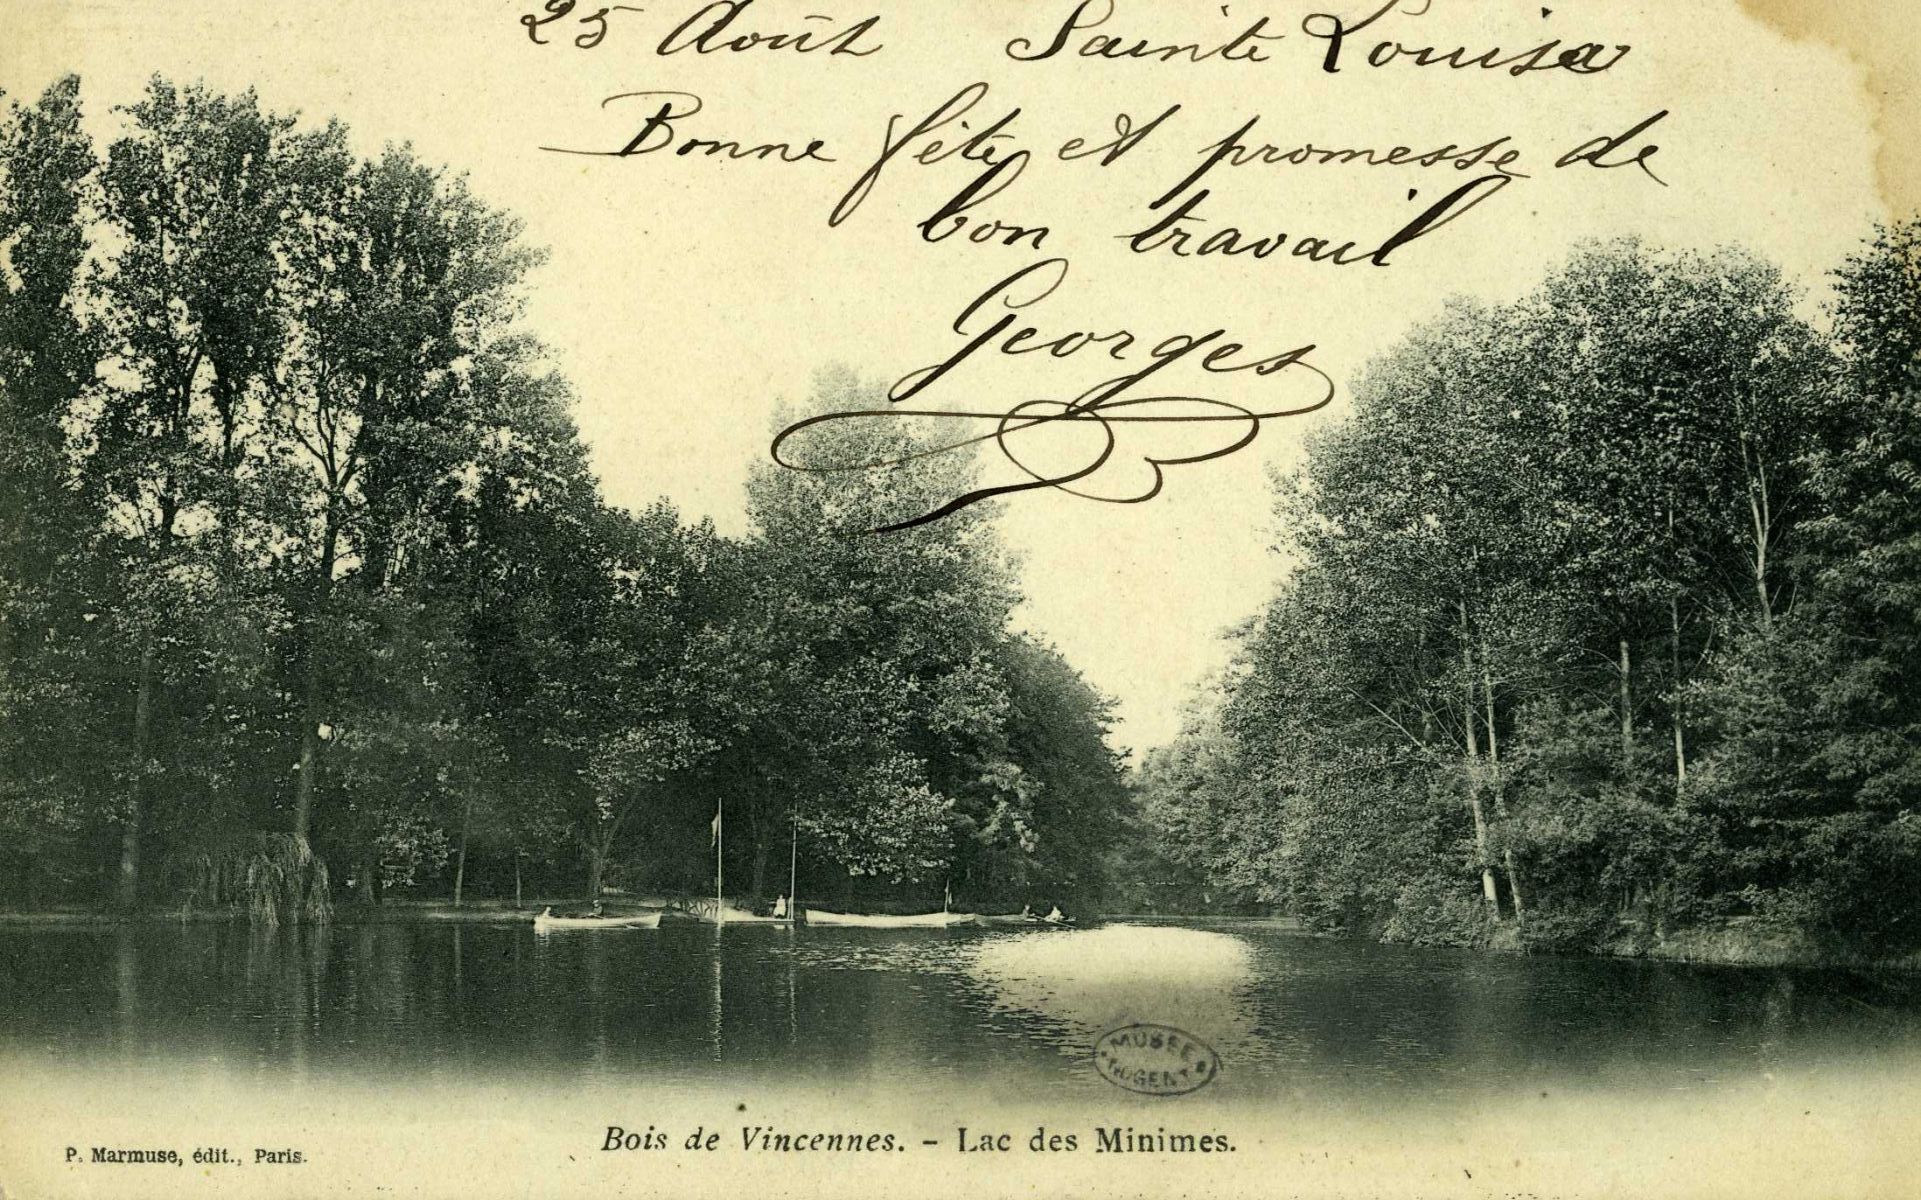 25 Août Sainte Louise
Bonne fête et promesse de
bon travail
Georges
MUSEE
NOGENT
Bois de Vincennes. - Lac des Minimes.
P. Marmuse, édit., Paris.